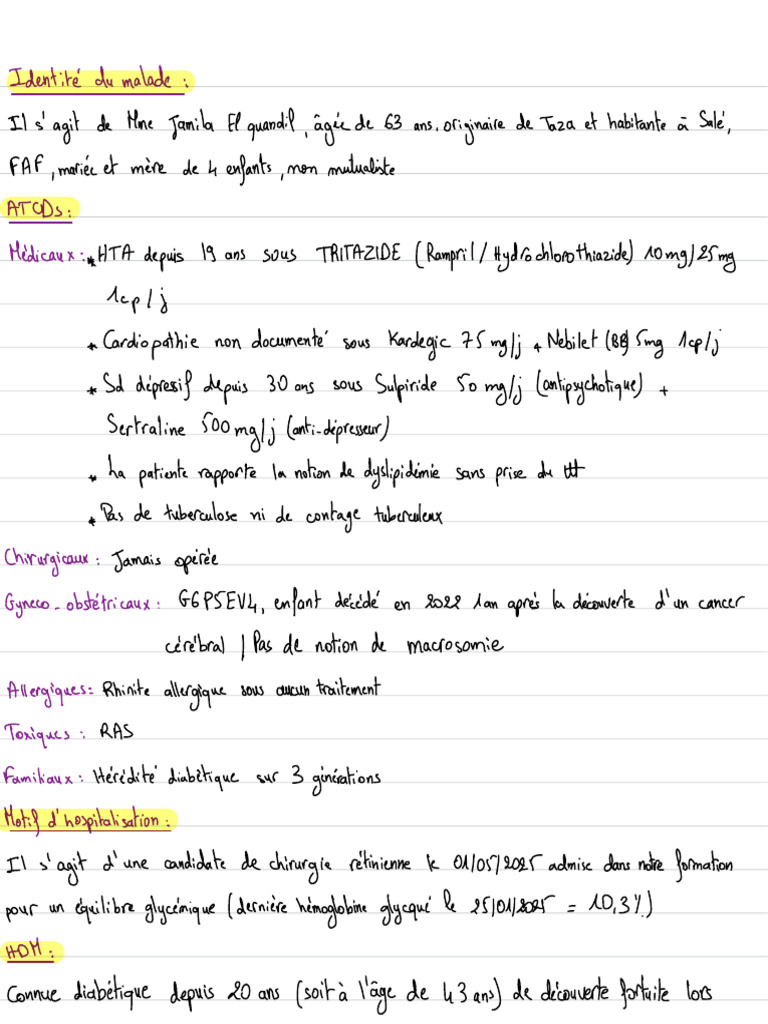 Identité du malade :
Il s'agit de Mme Jamila El quandil, âgée de 63 ans, originaire de Taza et habitante à Salé,
FAF, mariée et mère de 4 enfants, non mutualiste
ATCDs :
Médicaux : * HTA depuis 19 ans sous TRITAZIDE (Rampril / Hydrochlorothiazide) 10mg/25mg
1cp/j
* Cardiopathie non documenté sous Kardegic 75 mg/j + Nebilet (BB) 5mg 1cp/j
* Sd dépresif depuis 30 ans sous Sulpiride 50 mg/j (antipsychotique) +
Sertraline 500 mg/j (anti-dépresseur)
* La patiente rapporte la notion de dyslipidémie sans prise du ttt
* Pas de tuberculose ni de contage tuberculeux
Chirurgicaux : Jamais opérée
Gyneco-obstétricaux : G6P5EV4, enfant décédé en 2022 1an après la découverte d'un cancer
cérébral | Pas de notion de macrosomie
Allergiques : Rhinite allergique sous aucun traitement
Toxiques : RAS
Familiaux : Hérédité diabétique sur 3 générations
Motif d'hospitalisation :
Il s'agit d'une candidate de chirurgie rétinienne le 01/05/2025 admise dans notre formation
pour un équilibre glycémique (dernière hémoglobine glyqué le 25/01/2025 = 10,3%)
HDM :
Connue diabétique depuis 20 ans (soit à l'âge de 43 ans) de découverte fortuite lors